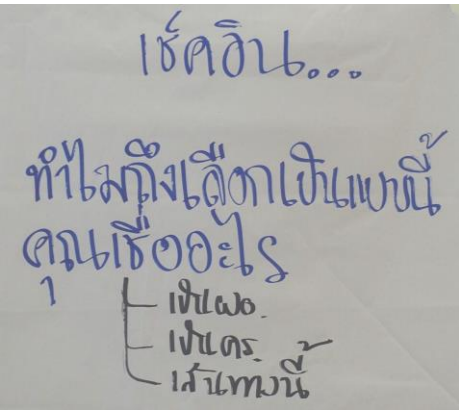 เช็คอิน...
ทำไมถึงเลือกเป็นแบบนี้
คุณเชื่ออะไร
เป็นผอ.
เป็นครู
เส้นทางนี้